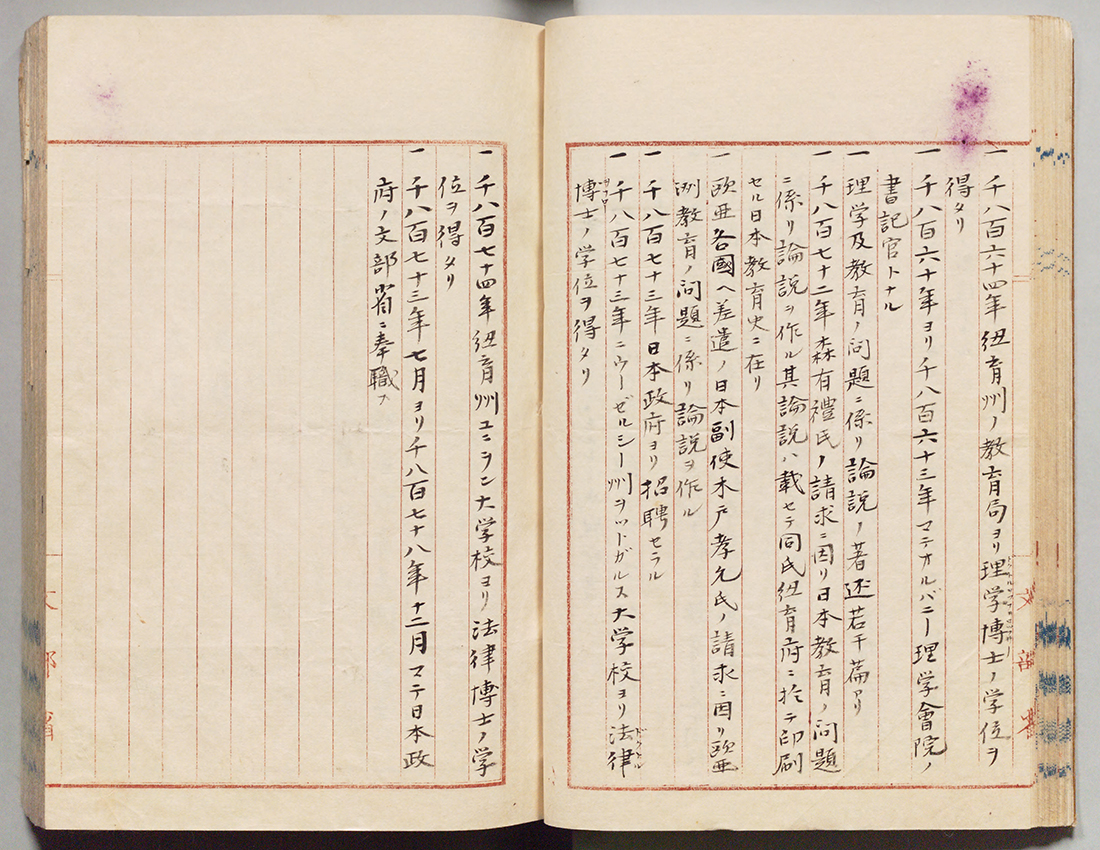 一 千八百六十四年紐育州ノ教育局ヨリ理学博士ノ学位ヲ
得タリ
一 千八百六十年ヨリ千八百六十三年マテオルバニー理学會院ノ
書記官トナル
一 理学及教育ノ问題ニ係リ論説ノ著述若干篇アリ
一 千八百七十二年森有禮氏ノ請求ニ因リ日本教育ノ问題
ニ係リ論説ヲ作ル其論説ハ載セテ同氏紐育府ニ於テ印刷
セル日本教育史ニ在リ
一 欧亜各國ヘ差遣ノ日本副使木戸孝允氏ノ請求ニ因リ欧亜
洲教育ノ问題ニ係リ論説ヲ作ル
一 千八百七十三年日本政府ヨリ招聘セラル
一 千八百七十三年ニウーゼルシー州ヲッドガルス大学校ヨリ法律
博士ノ学位ヲ得タリ
一 千八百七十四年紐育州ユニヲン大学校ヨリ法律博士ノ学
位ヲ得タリ
一 千八百七十三年七月ヨリ千八百七十八年十二月マテ日本政
府ノ文部省ニ奉職ス
文部省